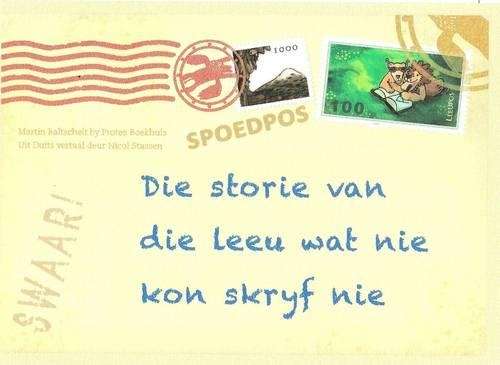 1000
100
LEEUPOS
SPOEDPOS
Martin Baltscheit by Protea Boekhuis
Uit Duits vertaal deur Nicol Stassen
SWAAR!
Die storie van
die leeu wat nie
kon skryf nie